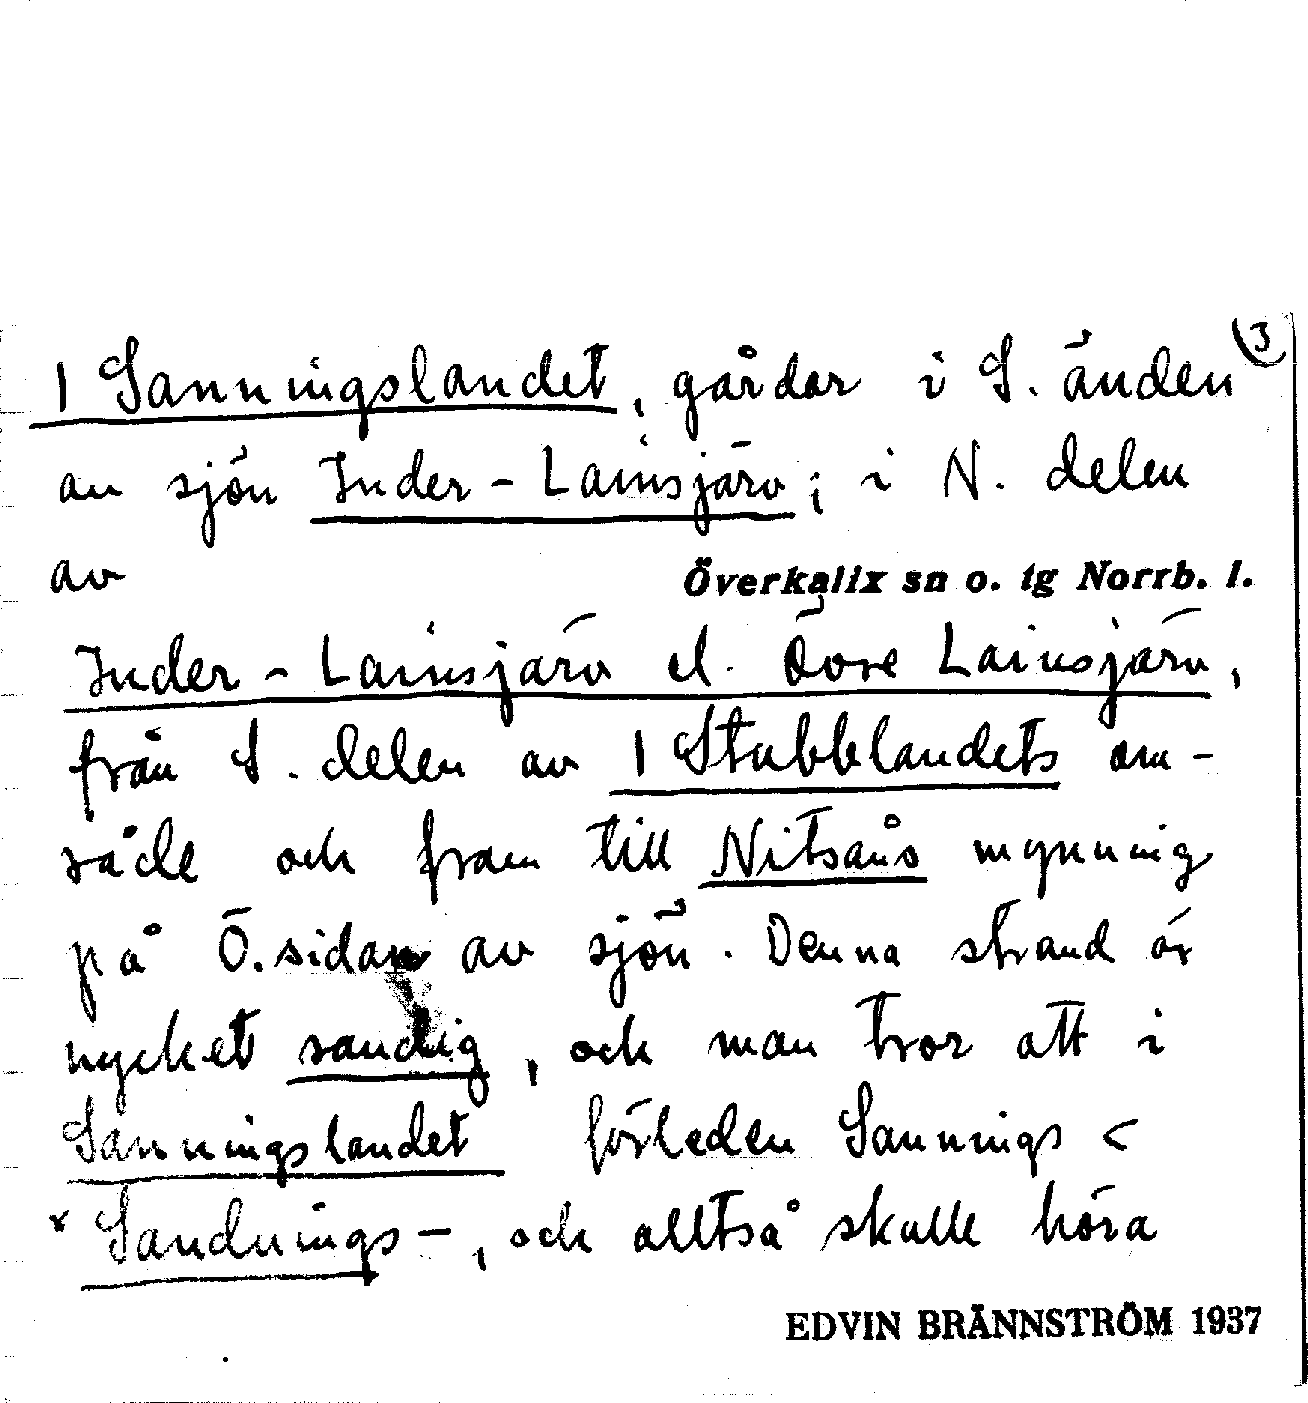 3
1 Sanningslandet, gårdar i S. änden
av sjön Inder-Lainsjärv; i N. delen
av
Överkalix sn o. tg Norrb. l.
Inder-Lainsjärv el. Övre Lainsjärv,
från S. delen av 1 Stubblandets om-
råde och fram till Nitsåns mynning
på Ö. sidan av sjön. Denna strand är
mycket sandig, och man tror att i
Sanningslandet förleden Sannings <
* Sandnings-, och alltså skulle höra
EDVIN BRÄNNSTRÖM 1937